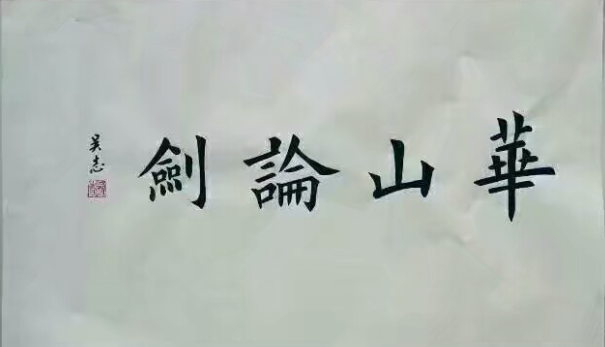 華山論劍
吴志